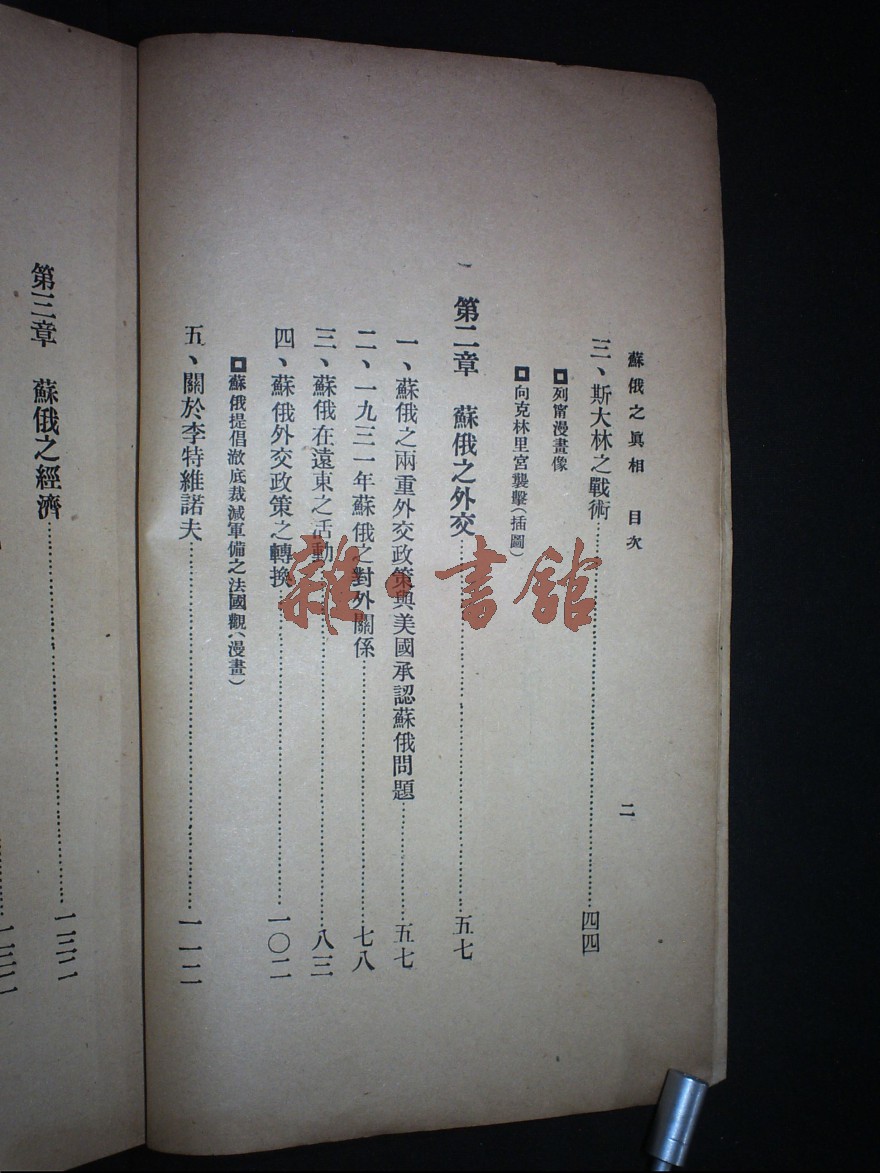 蘇俄之眞相 目次 二
三、斯大林之戰術……四四
列甯漫畫像
向克林里宮襲擊(插圖)
第二章 蘇俄之外交……五七
一、蘇俄之兩重外交政策與美國承認蘇俄問題……五七
二、一九三一年蘇俄之對外關係……七八
三、蘇俄在遠東之活動……八三
四、蘇俄外交政策之轉換……一〇二
蘇俄提倡澈底裁減軍備之法國觀(漫畫)
五、關於李特維諾夫……一一二
第三章 蘇俄之經濟……一三二
一三二
雜·書館